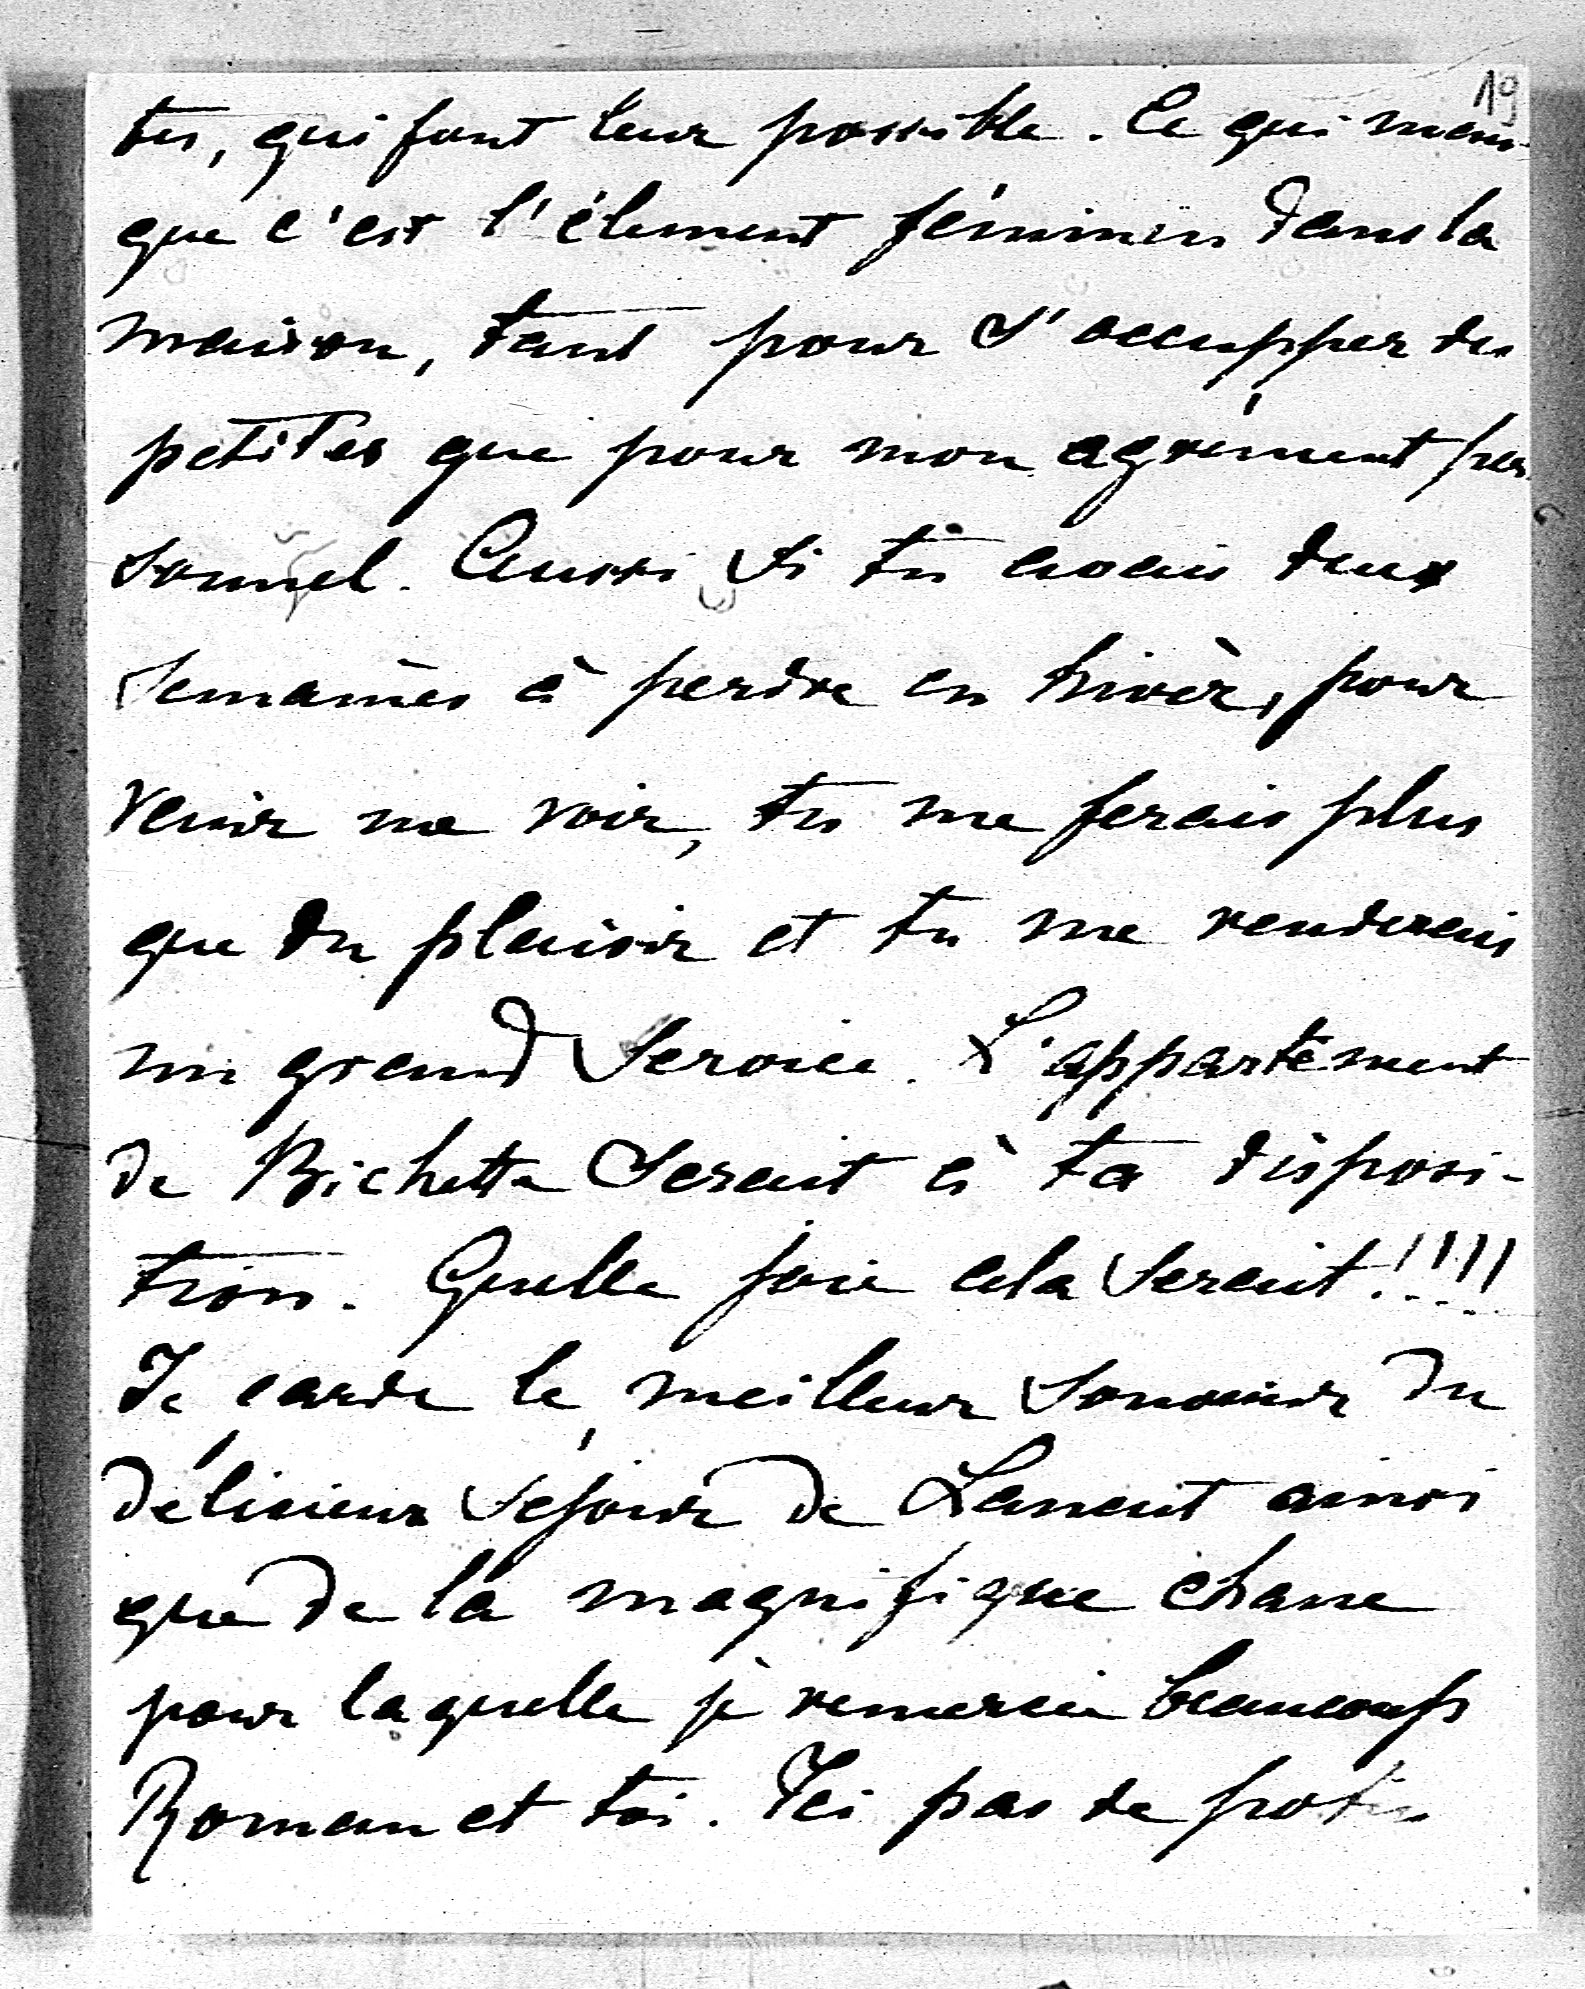 19
tes, qui font leur possible. Ce qui man-
que c'est l'élément féminin dans la
maison, tant pour s'occupper des
petites que pour mon agrément per-
sonnel. Aussi si tu avais deux
semaines à perdre en hivèr, pour
venir me voir, tu me ferais plus
que du plaisir et tu me renderais
un grand service. L'appartement
de Bichette serait à ta disposi-
tion. Quelle joie cela serait!!!!
Je garde le meilleur souvenir du
délicieux séjour de Lancut ainsi
que de la magnifique chasse
pour laquelle je remercie beaucoup
Roman et toi. Ici pas de